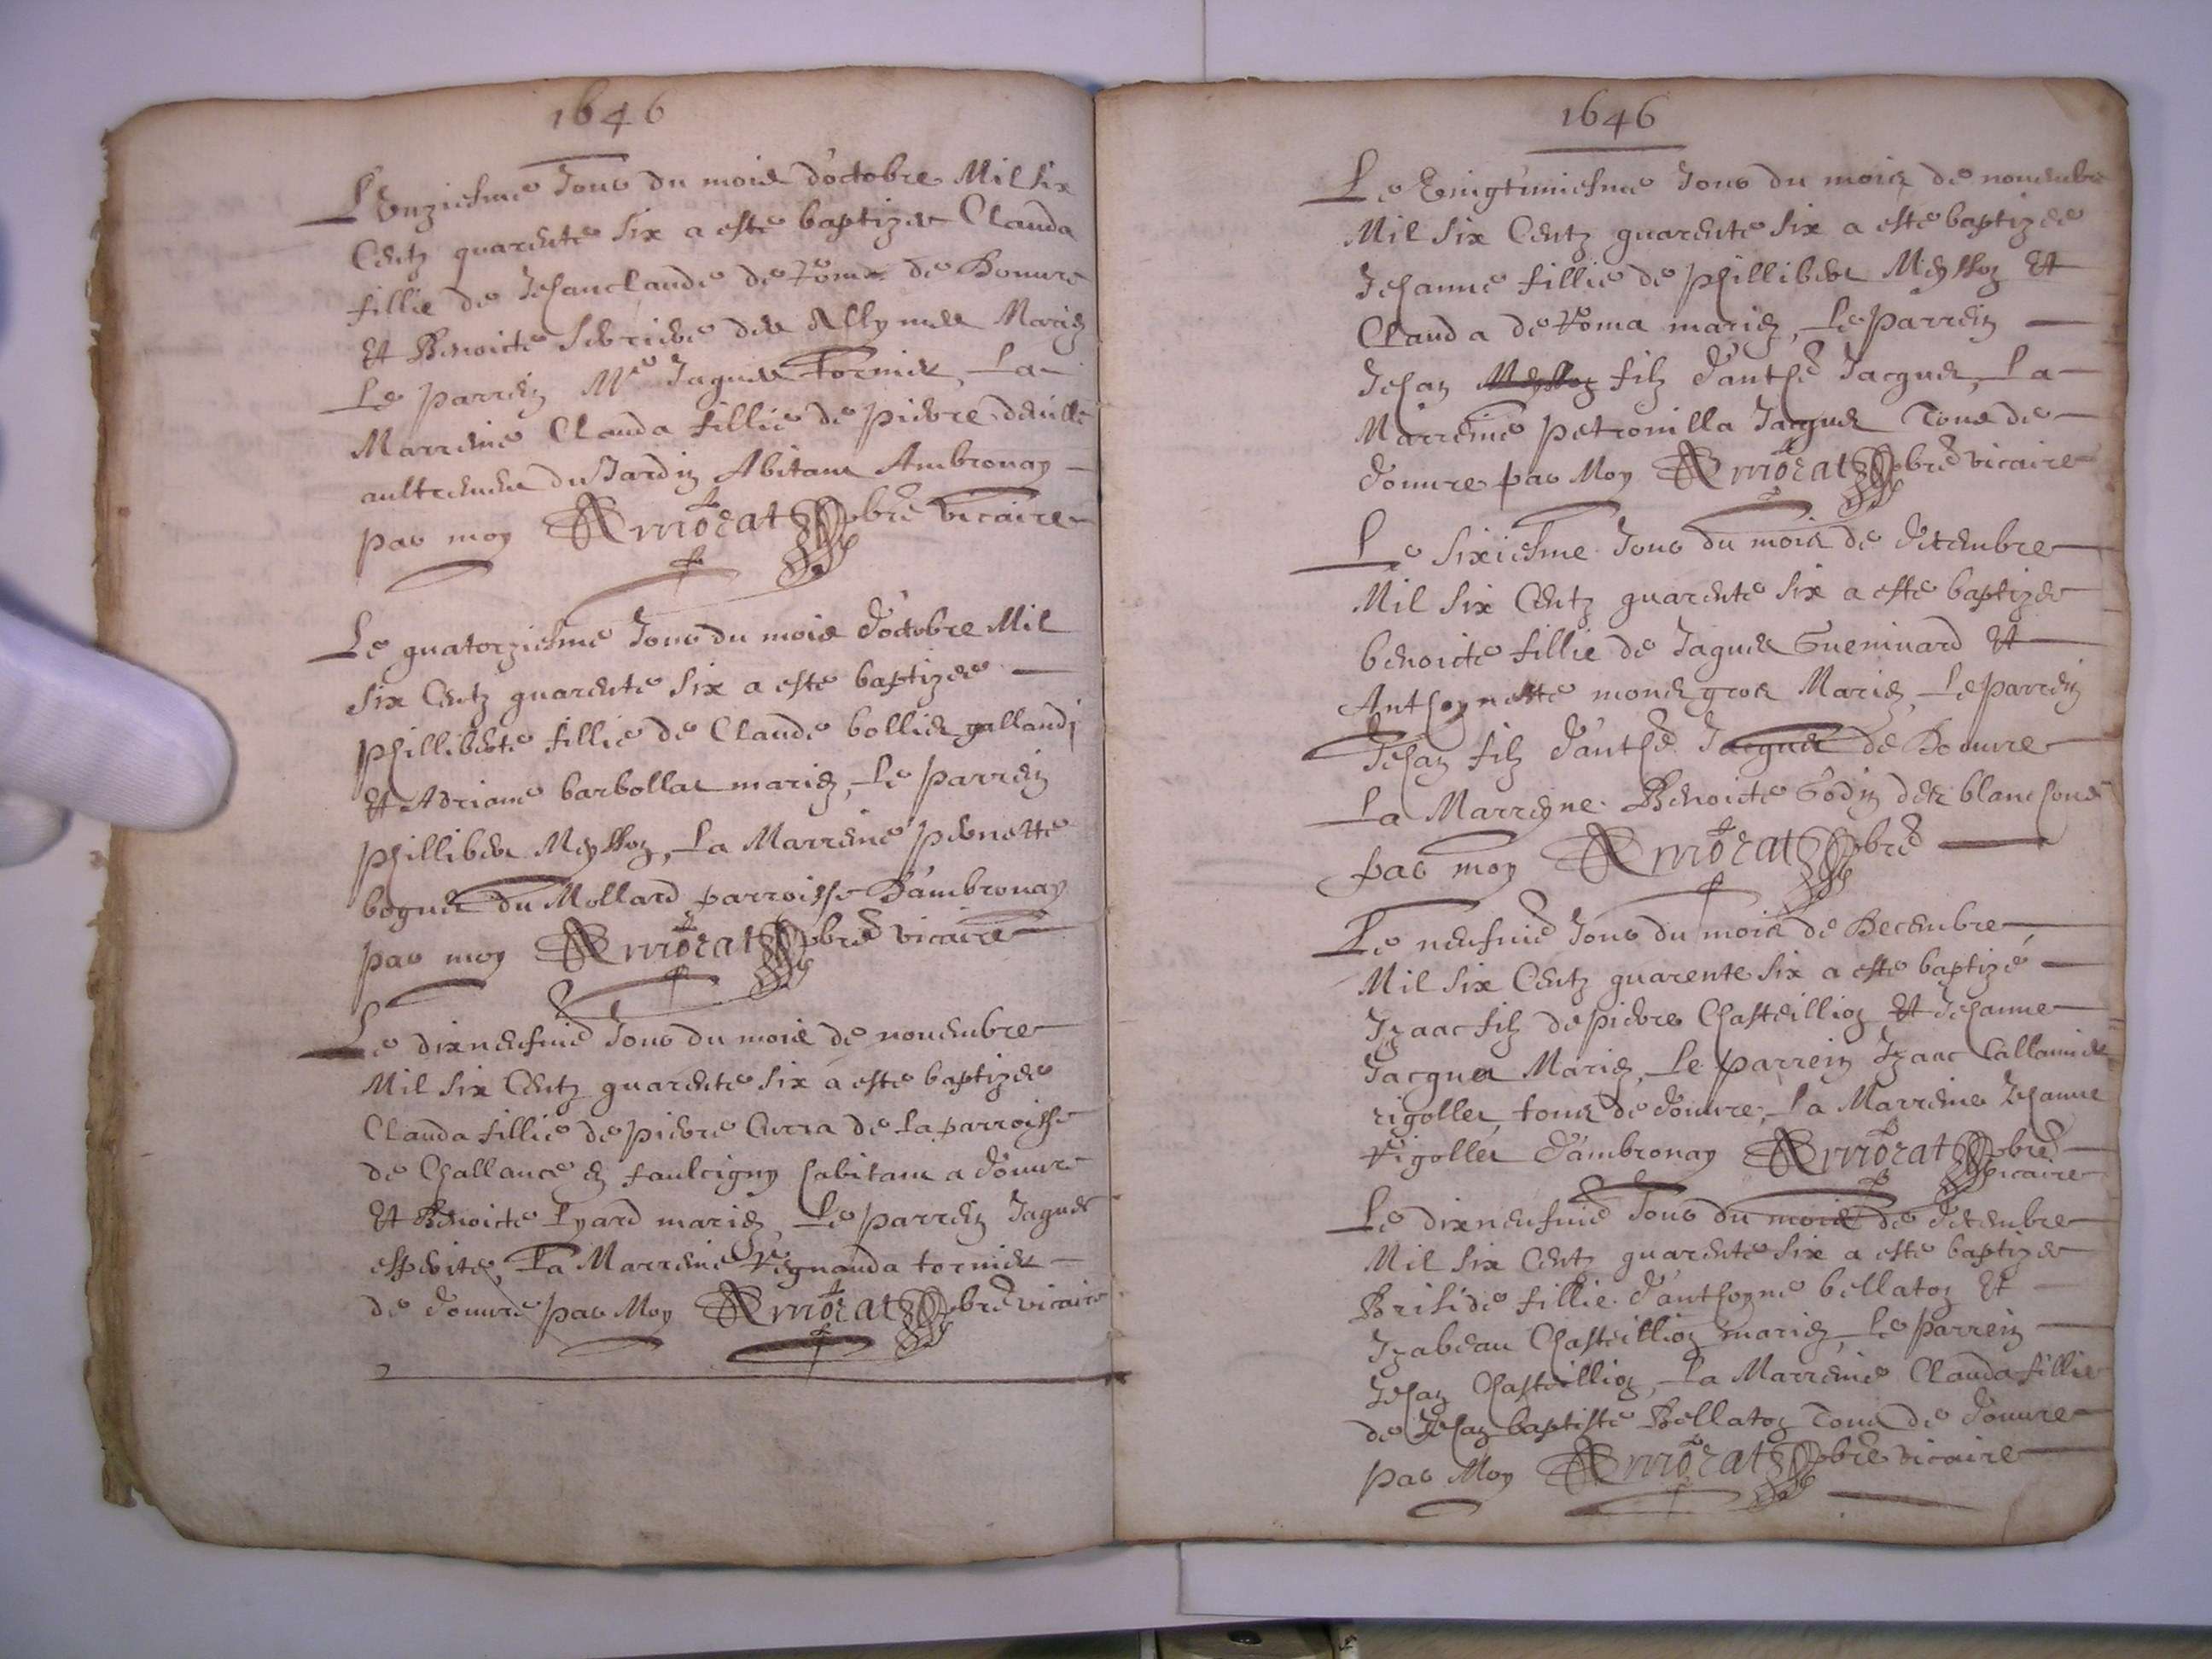 1646
L'Unziesme Jour du mois d'octobre Mil six
Centz quarente six a este baptizée Clauda
fillie de Jehanclaude de Roma de Douure
Et Benoicte des Allymes Mariez
Le parrein Mre Jaques Tornier, La
Marreine Clauda fillie de pierre deville
aultrement du Jardin Abitant Ambronay
par moy Armorat pbre vicaire
Le quatorziesme Jour du mois d'octobre Mil
six Centz quarente six a este baptizée
Philliberte fillie de Claude bollier gallandj
Et Adriane barbollat mariez, Le parrein
Phillibert Meysson, La Marreine pernette
bognet du Mollard parroisse D'ambronay
par moy Armorat pbre vicaire
Le dixneufme Jour du mois de nouembre
Mil six Centz quarente six a este baptizée
Clauda fillie de pierre Curra de La parroisse
de Challance en faulcigny habitant a douure
Et Benoicte Lyard mariez, Le parrein Jaques
La Marreine Regnauda tornier
de douure par Moy Armorat pbre vicaire
1646
Le Vingtuniesme Jour du mois de nouembre
Mil six Centz quarente six a este baptizée
Jehanne fillie de Phillibert Meysson Et
Clauda de Roma mariez, Le parrein
Jehan filz d'anthe Jacquet, La
Marreine petronilla Jacquet Tous de
douure par Moy Armorat pbre vicaire
Le sixiesme Jour du mois de decembre
Mil six Centz quarente six a este baptizée
benoicte fillie de Jaques Gueninard Et
Anthoynette mongros Mariez, Le parrein
Jehan filz d'anthe Jacquet de Douure
La Marreyne Benoicte Godin des blanchons
par moy Armorat pbre
Le neufme Jour du mois de Decembre,
Mil six Centz quarente six a este baptizé
Izaac filz de pierre Chasteillion Et Jehanne
Jacquet Mariez, Le parrein Izaac Callamier
rigollet, tous de douure, La Marreine Jehanne
Rigollet d'ambronay Armorat pbre
vicaire
Le dixneufme Jour du mois de decembre
Mil six Centz quarente six a este baptizée
Briside fillie d'anthoyne bellaton Et
Izabeau Chasteillion mariez, Le parrein
Jehan Chasteillion, La Marreine Clauda fillie
de Jehan baptiste Bellaton Tous de douure
par Moy Armorat pbre vicaire